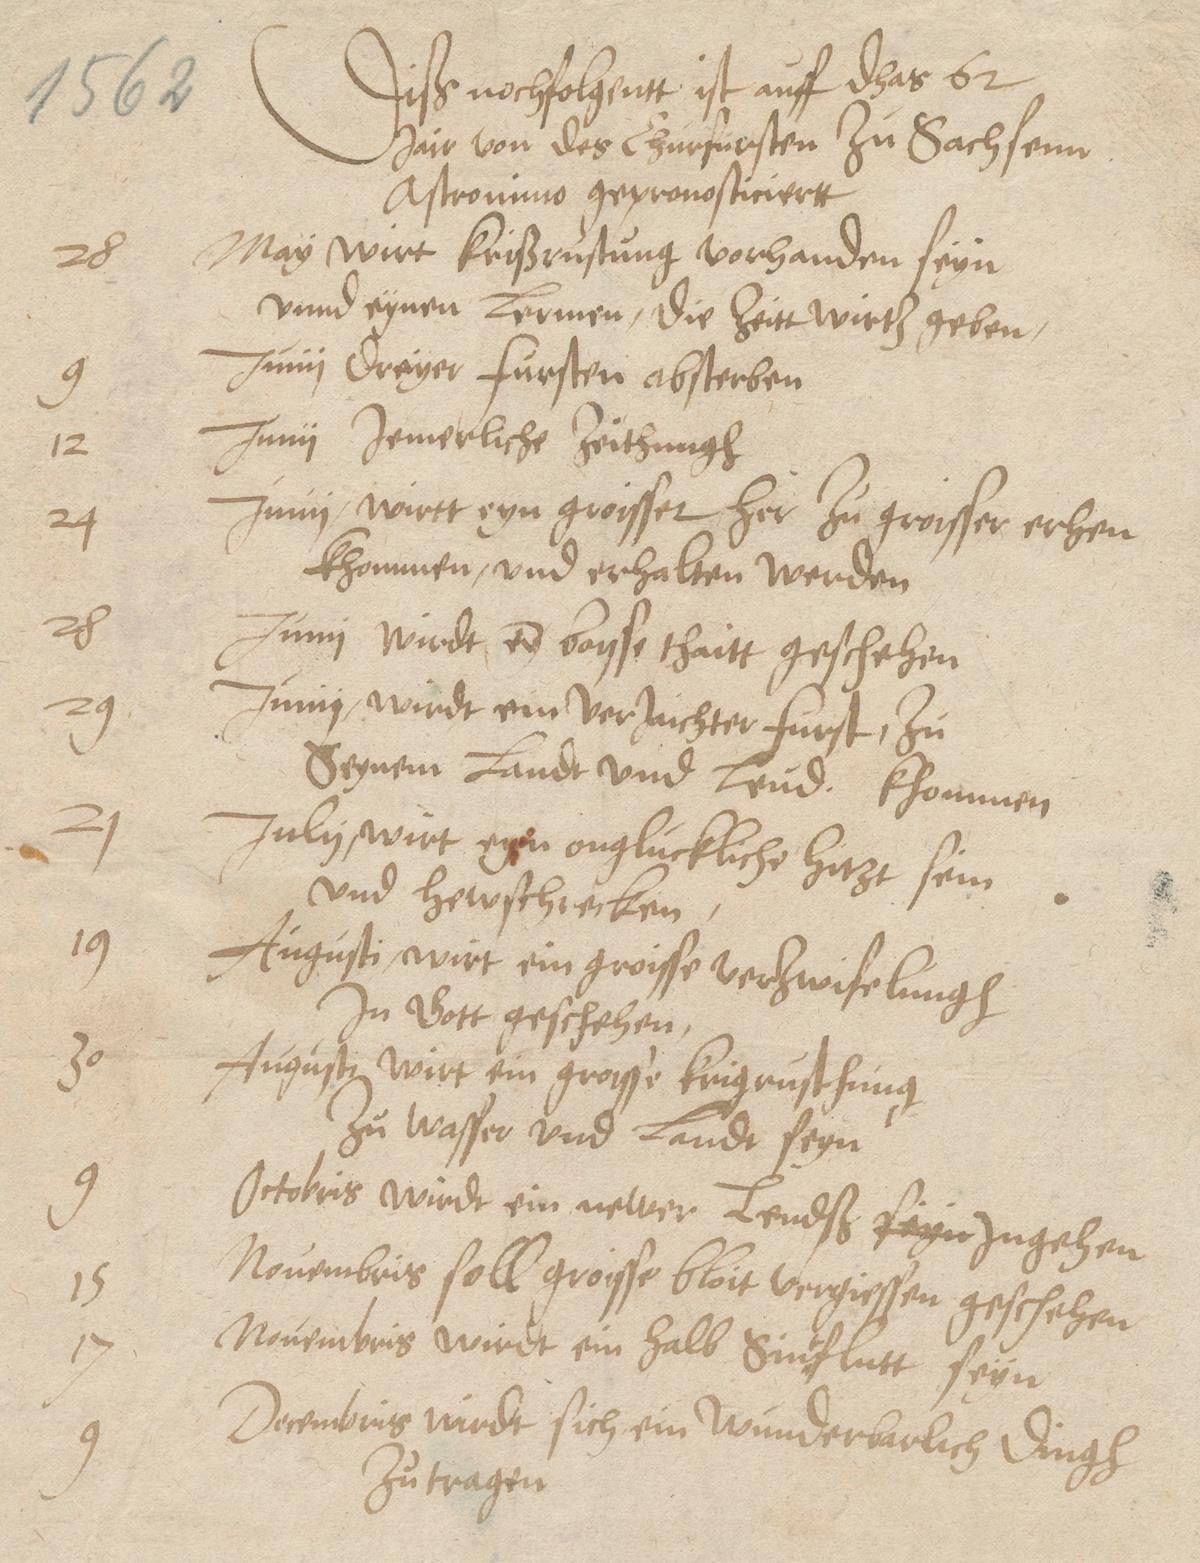 1562
Diss nochfolgentt ist auff dhas 62
Jair von des Churfursten zu Sachsenn
Astronimo gepronosticiertt
28 May wirt krißrustung vorhanden seyn
vnnd eynen Lermen, die zeitt wirtz geben,
9 Junij dreyer fursten absterben
12 Junij Jemerliche zeithungh
24 Junij, wirtt eyn groisser her zu groisser erhen
khommen, vnd erhalten werden
28 Junij wirdt ein boysse thaitt geschehen
29 Junij, wirdt ein verJaichter furst, zu
Seynem Landt vnd Leud. khommen
21 Julij, wirt eyn onglückliche hitzt sein
vnd hewschrecken,
19 Augusti, wirt ein groisse verzwifelungh
In Gott geschehen,
30 Augusti wirt ein groisse krigrusthung
zu wasser vnd Landt seyn
9 Octobris wirdt ein newer Lendß seyn Ingehen
15 Nouembris soll groisse bloit vergiessen geschehen
17 Nouembris wirdt ein halb Sintflutt seyn
9 Decembris wirdt sich ein wunderbarlich dingh
zutragen